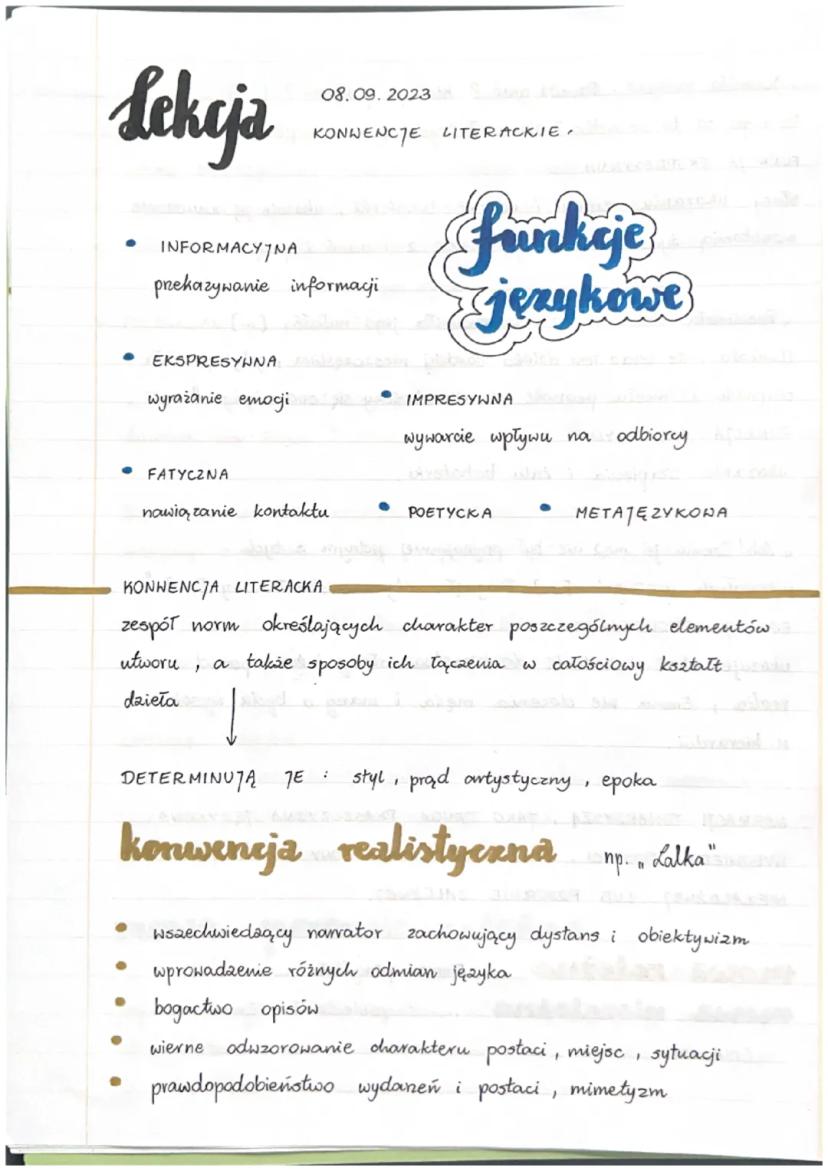 Lekcja
08.09.2023
KONWENCJE LITERACKIE.
funkcje
językowe
• INFORMACYJNA
przekazywanie informacji
• EKSPRESYWNA
wyrażanie emocji
• IMPRESYWNA
wywarcie wpływu na odbiorcy
• FATYCZNA
nawiązanie kontaktu
• POETYCKA
• METAJĘZYKOWA
KONWENCJA LITERACKA
zespół norm określających charakter poszczególnych elementów
utworu, a także sposoby ich łączenia w całościowy kształt
dzieła
DETERMINUJĄ JE : styl, prąd artystyczny, epoka
konwencja realistyczna np. „Lalka"
• wszechwiedzący narrator zachowujący dystans i obiektywizm
• wprowadzenie różnych odmian języka
• bogactwo opisów
• wierne odwzorowanie charakteru postaci, miejsc, sytuacji
• prawdopodobieństwo wydarzeń i postaci, mimetyzm